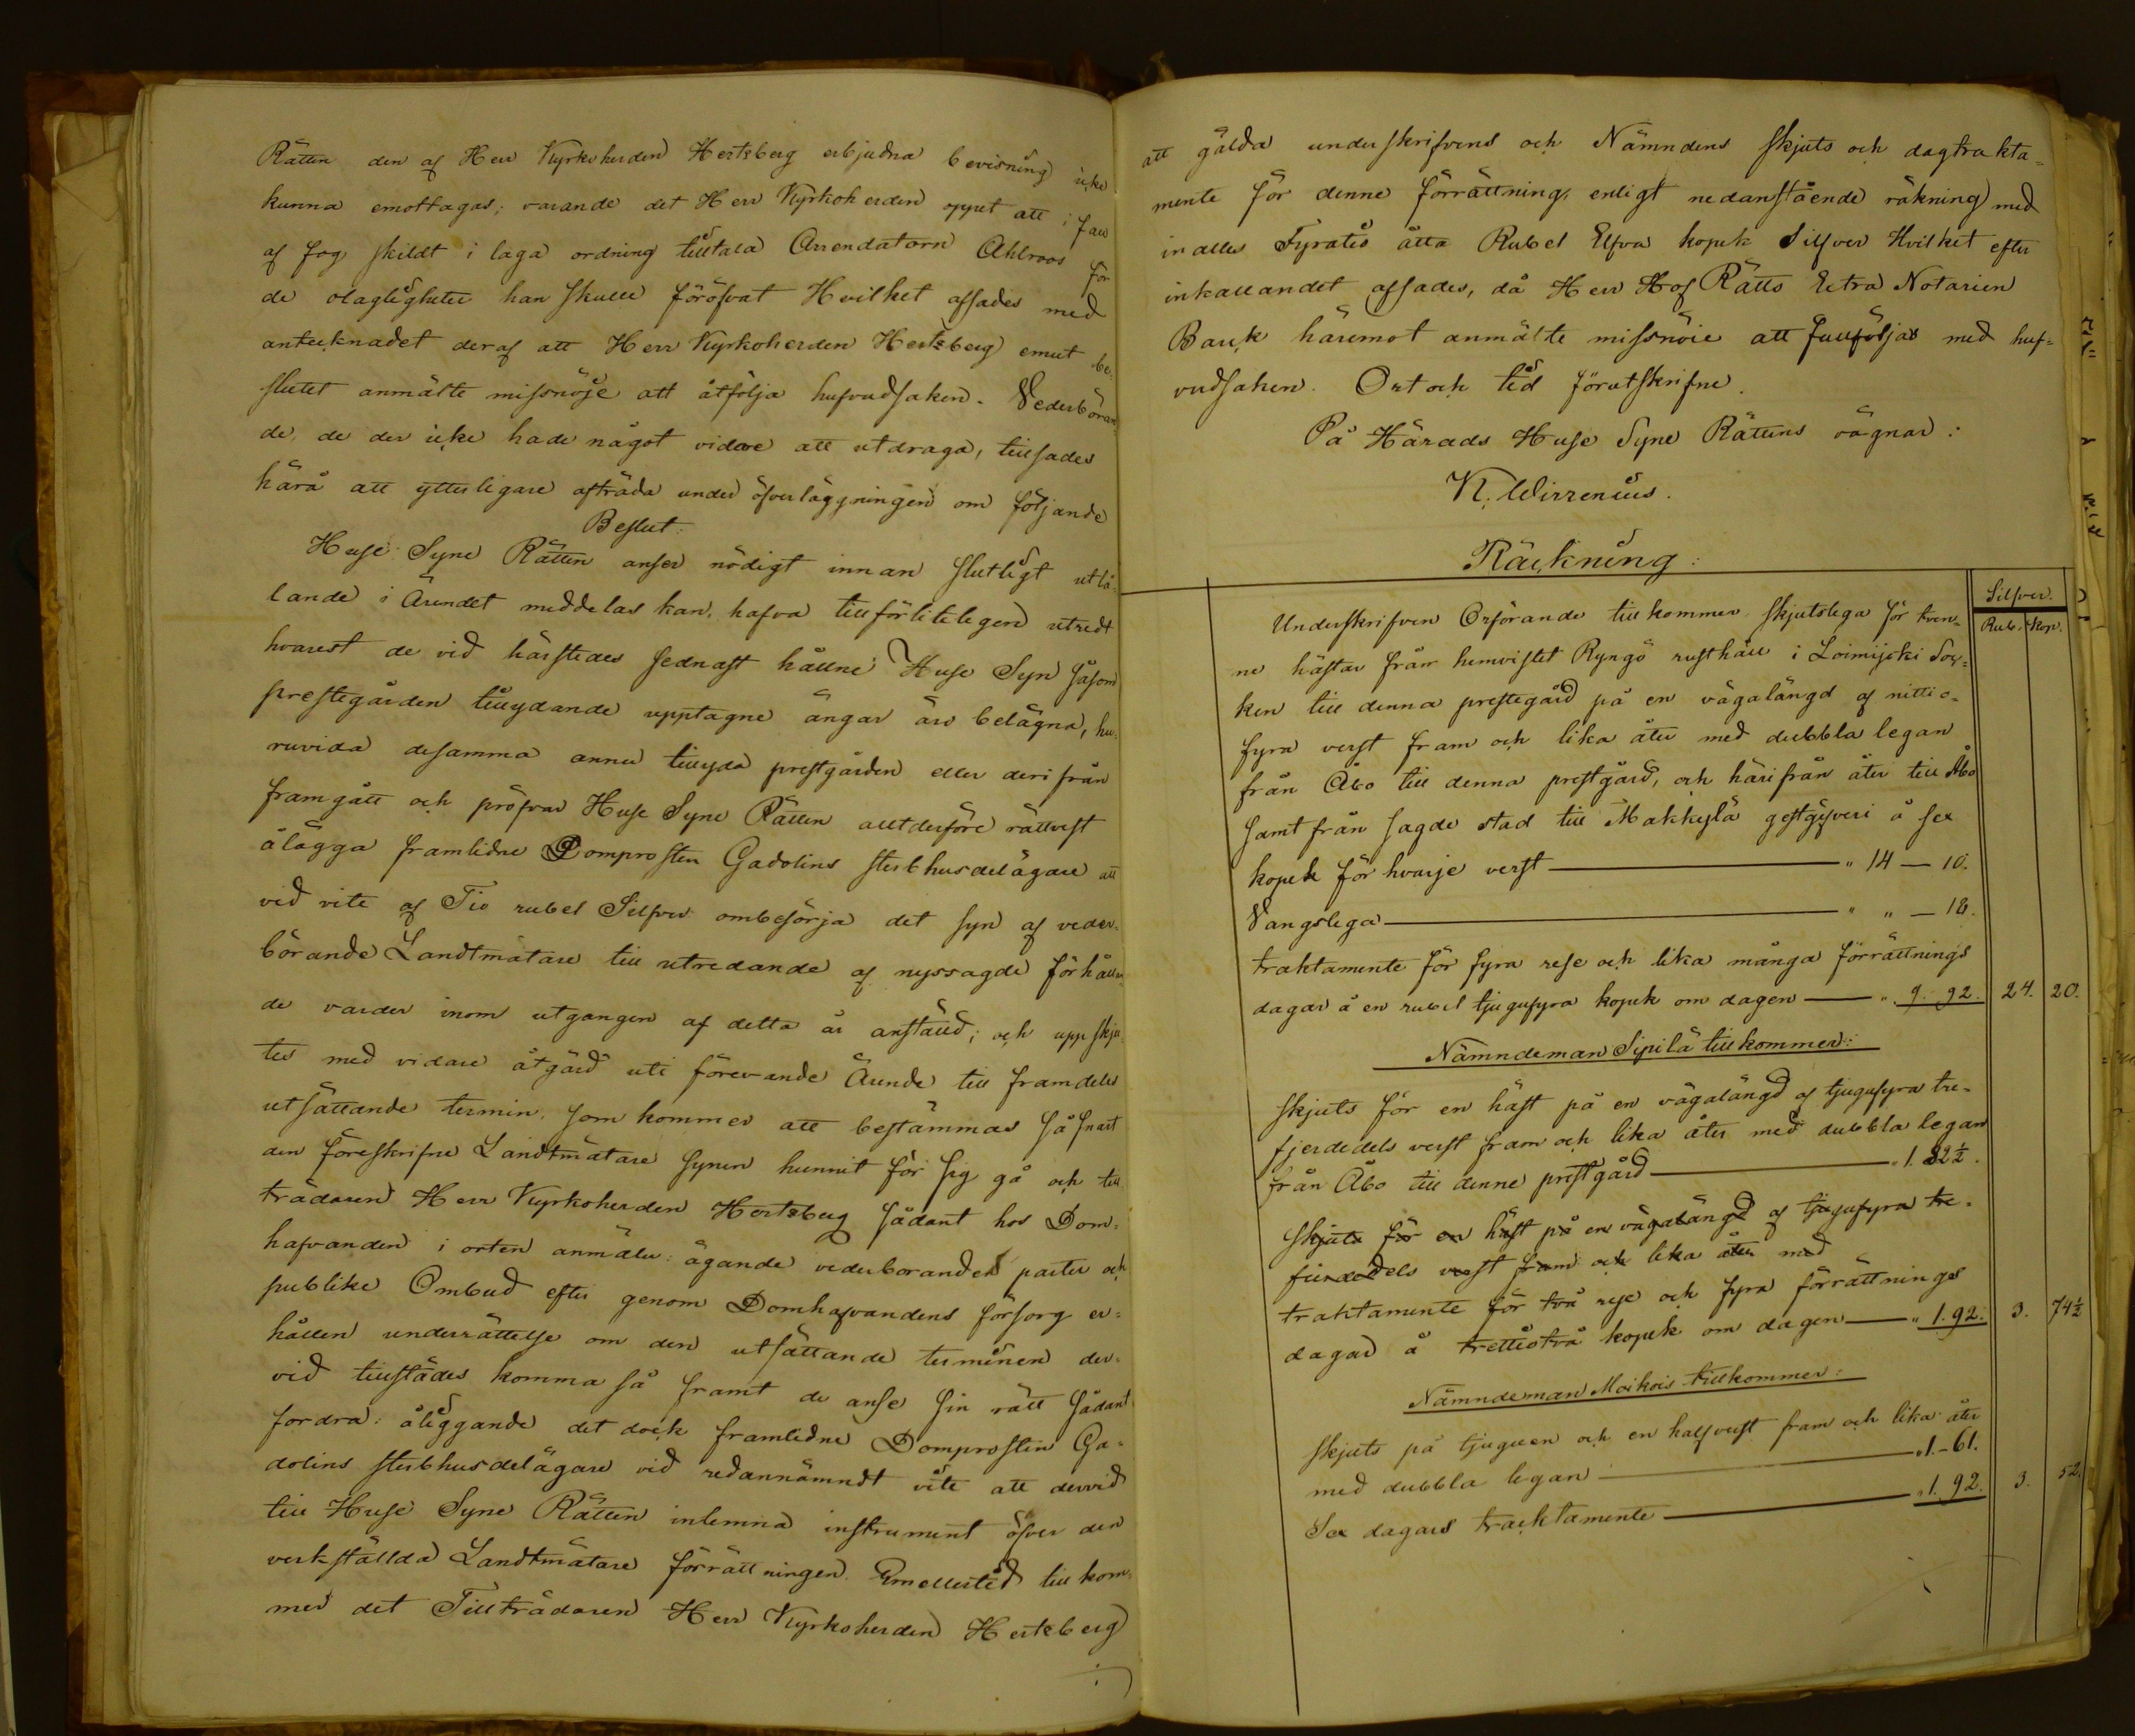 Rätten den af Herr Kyrkoherden Hertzberg erbjudna bevisning icke
kunna emottagas; varande det Herr Kyrkoherden öppet att i fall
af fog skildt i laga ordning tilltala Arrendatorn Ahlroos för
de olagligheter han skulle föröfvat Hvilket afsades med
antecknadet deraf att Herr Kyrkoherden Hertzberg emot be-
slutet anmälte missnöje att åtfölja hufvudsaken. Vederböran-
de, de der icke hade något vidare att utdraga, tillsades
härå att ytterligare afträda under öfverläggningen om följande
Beslut:
Huse Syne Rätten anser nödigt innan slutligt utlå-
lande i Ärendet meddelas kan, hafva tillförliteligen utredt
hvarest de vid härstedes sednast hållne Huse Syn såsom
prestegården tillydande upptagne ängar äro belägna, hu-
ruvida desamma annu tillyda prestgården eller derifrån
framgått och pröfvar Huse Syne Rätten alltderföre rättvist
ålägga framlidne Domprosten Gadolins sterbhusdelägare att
vid vite af Tio rubel Silfver ombesörja det syn af veder-
börande Landtmätare till utredande af nyssagde förhållan-
de varder inom utgången af detta år anställd; och uppskju-
tes med vidare åtgärd uti förevarande Ärende till framdeles
utsättande termin, som kommer att bestämmas så snart
den föreskrifne Landtmätare synen hunnit för sig gå och till-
trädaren Herr Kyrkoherden Hertzberg sådant hos Dom-
hafvanden i orten anmäler: ägande vederboranden parter och
publike Ombud efter genom Domhafvandens försorg er-
hållen underrättelse om den utsättande terminen der-
vid tillstädes komma så framt de anse sin rätt sådant
fordra: åliggande det dock framledne Domprosten Ga-
dolins sterbhusdelägare vid redannämndt vite att dervid
till Huse Syne Rätten inlemna instrument öfver den
verkställda Landtmätare förrättningen. Emellertid till kom-
mer det Tillträdaren Herr Kyrkoherden Hertzberg
att gälda underskrifvens och Nämndens skjuts och dagtrakta-
mente för denne förrättning, enligt nedanstående räkning med
inalles Fyratio åtta Rubel Elfva kopek Silfver Hvilket efter
inkallandet afsades, då Herr Hof Rätts Extra Notarien
Bauk häremot anmälte missnöie att fullföljas med huf-
vudsaken. Ort och tid förutskrifne.
På Härads Huse Syne Rättens vägnar:
K. Wirzenius.
Räckning:
Silfver.
Rub. Kop.
Underskrifven Orförande tillkommer skjutslega för tven-
ne hästar från hemvistet Ryngö rusthåll i Loimijoki Soc-
ken till denna prestegård på en vägalängd af nittio-
fyra verst fram och lika åter med dubbla legan
från Åbo till denna prestgård, och härifrån åter till Åbo
samt från sagde stad till Makkylä gestgifveri å sex
kopek för hvarje verst " 14 — 10.
Vangslega " " — 18.
traktamente för fyra rese och lika många förrättnings
dagar å en rubel tjugufyra kopek om dagen " 9. 92. 24. 20.
Nämndeman Sipilä tillkommer:
skjuts för en häst på en vägalängd af tjugufyra tre-
fjerdedels verst fram och lika åter med dubbla legan
från Åbo till denne prestgård " 1. 82½.
skjuts för en häst på en vägalängd af tjugufyra tre-
fierdedels verst fram och lika åter med
traktamente för två rese och fyra förrättnings
dagar å trettiotvå kopek om dagen " 1. 92. 3. 74½
Nämndeman Moikois tillkommer:
skjuts på tjuguen och en half verst fram och lika åter
med dubbla legan " 1. - 61.
Sex dagars tracktamente " 1. 92. 3. 52.